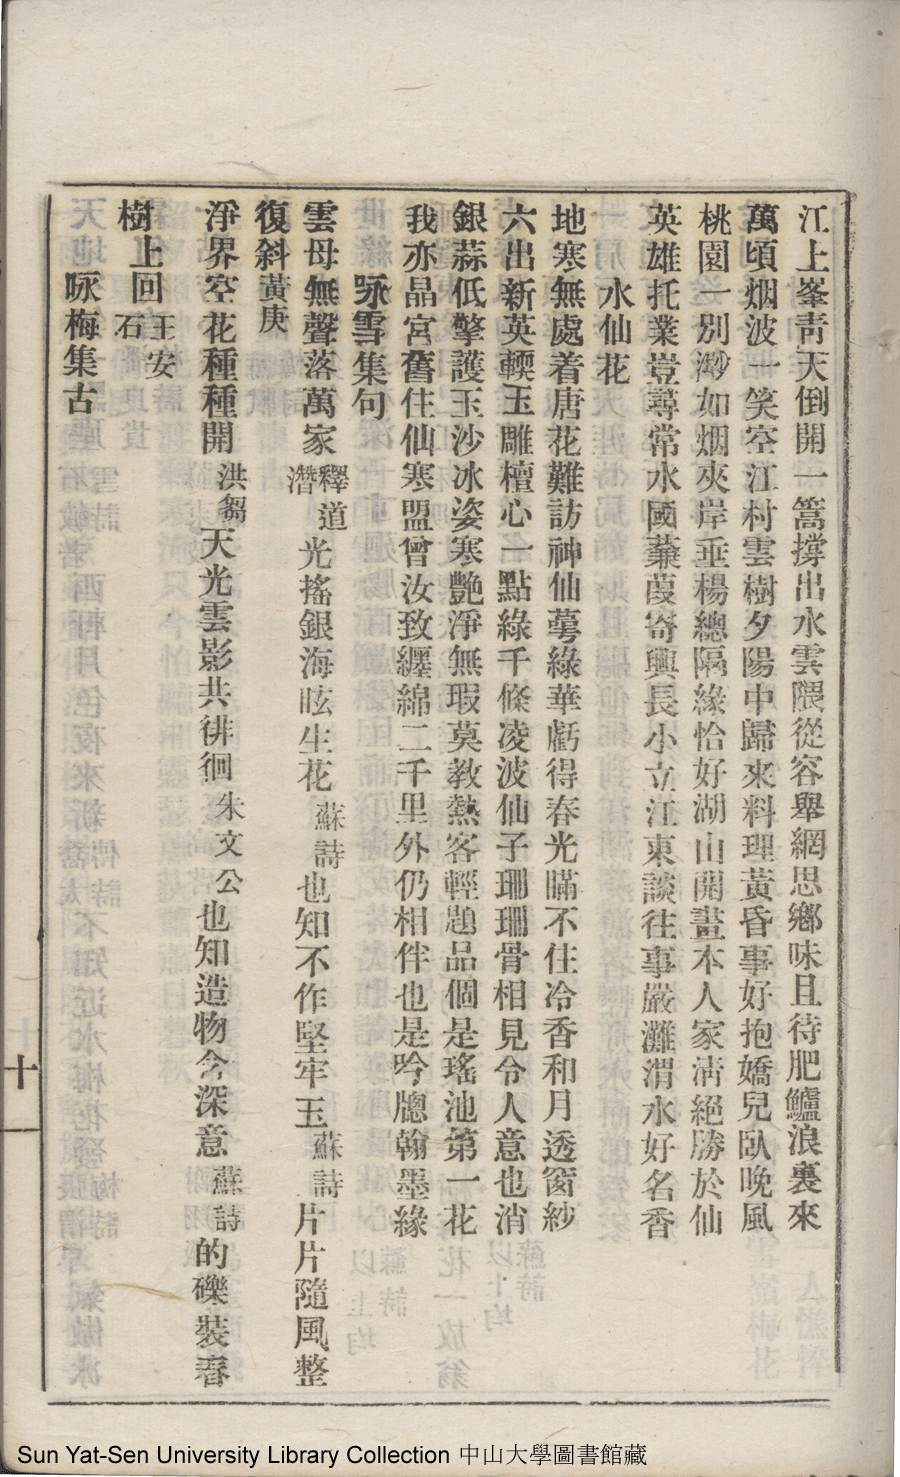 江上峯靑天倒開一篙撐出水雲隈從容舉網思鄉味且待肥鱸浪裏來
萬頃烟波一笑空江村雲樹夕陽中歸來料理黃昏事好抱嬌兒臥晚風
桃園一別渺如烟夾岸垂楊總隔緣恰好湖山開畫本人家淸絕勝於仙
英雄托業豈尋常水國蒹葭寄興長小立江東談往事嚴灘渭水好名香
水仙花
地寒無處着唐花難訪神仙萼綠華虧得春光瞞不住冷香和月透窗紗
六出新英輭玉雕檀心一點綠千條凌波仙子珊珊骨相見令人意也消
銀蒜低擎護玉沙冰姿寒艷淨無瑕莫教熱客輕題品個是瑤池第一花
我亦晶宮舊住仙寒盟曾汝致纏綿二千里外仍相伴也是吟牕翰墨緣
咏雪集句
雲母無聲落萬家釋道潛光搖銀海眩生花蘇詩也知不作堅牢玉蘇詩片片隨風整
復斜黃庚
淨界空花種種開洪芻天光雲影共徘徊朱文公也知造物含深意蘇詩的礫裝春
樹上回王安石
咏梅集古
十
Sun Yat-Sen University Library Collection 中山大學圖書館藏